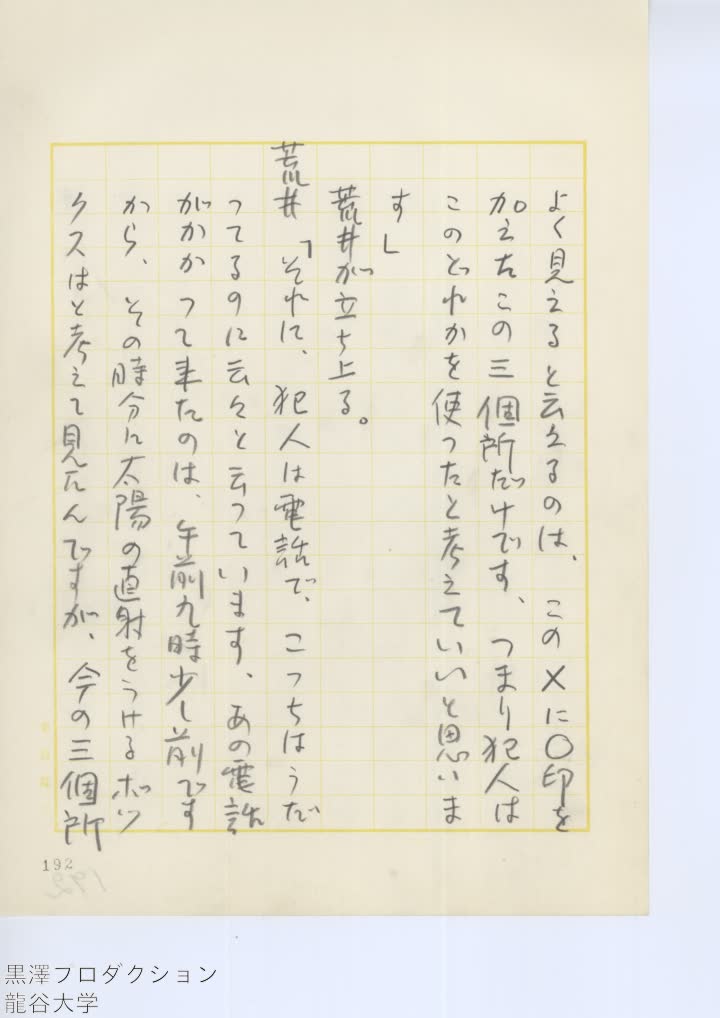 よく見えると云えるのは、この×に〇印を
加えたこの三個所だけです、つまり犯人は
このどれかを使ったと考えていいと思いま
す」
荒井が立ち上る。
荒井「それに、犯人は電話で、こっちはうだ
ってるのに云々と云っています、あの電話
がかかって来たのは、午前九時少し前です
から、その時分に太陽の直射をうけるボッ
クスはと考えて見たんですが、今の三個所
192
192
黒澤プロダクション
龍谷大学